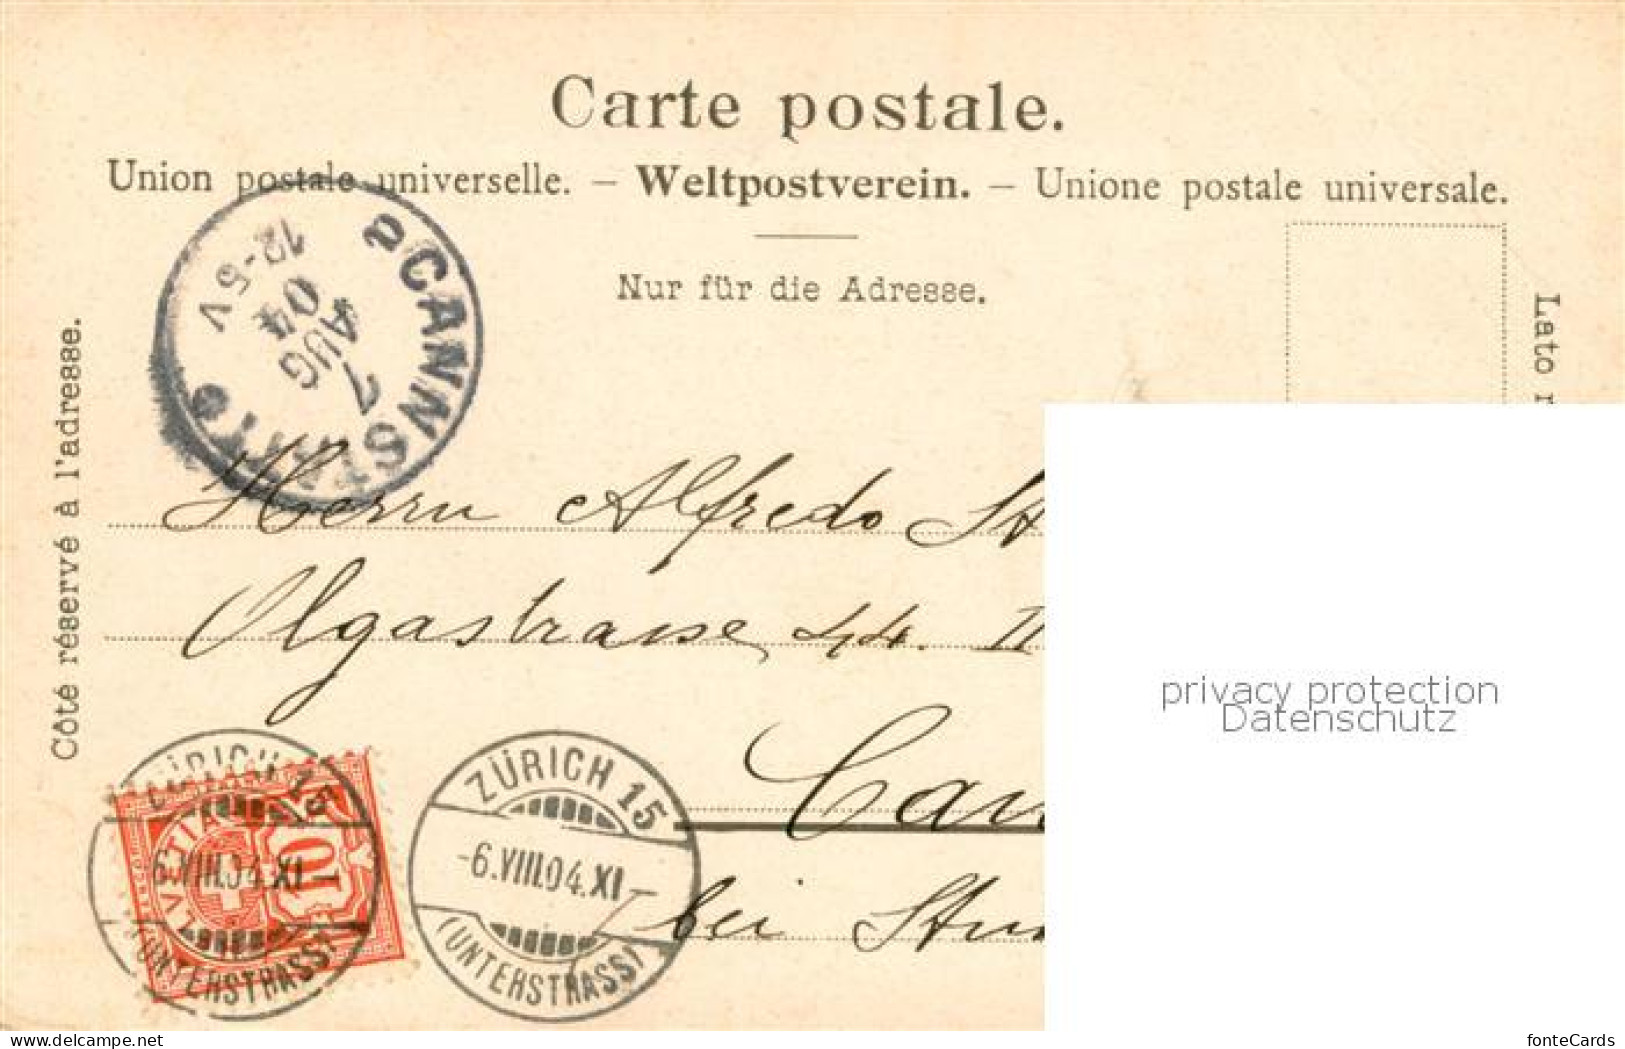 Carte postale.
Union postale universelle. – Weltpostverein. – Unione postale universale.
Nur für die Adresse.
Côté réservé à l'adresse.
Lato r
a CANNSTATT
12-5 V
04
AUG
7
Herrn Alfredo St
Olgastrasse 44. II
Cann
bei Stu
ZÜRICH 15
6.VIII.04.XI–
(UNTERSTRASS)
HELVETIA
10
FRANCO
ZÜRICH 15
-6.VIII.04.XI–
(UNTERSTRASS)
privacy protection
Datenschutz
www.delcampe.net
fonteCards